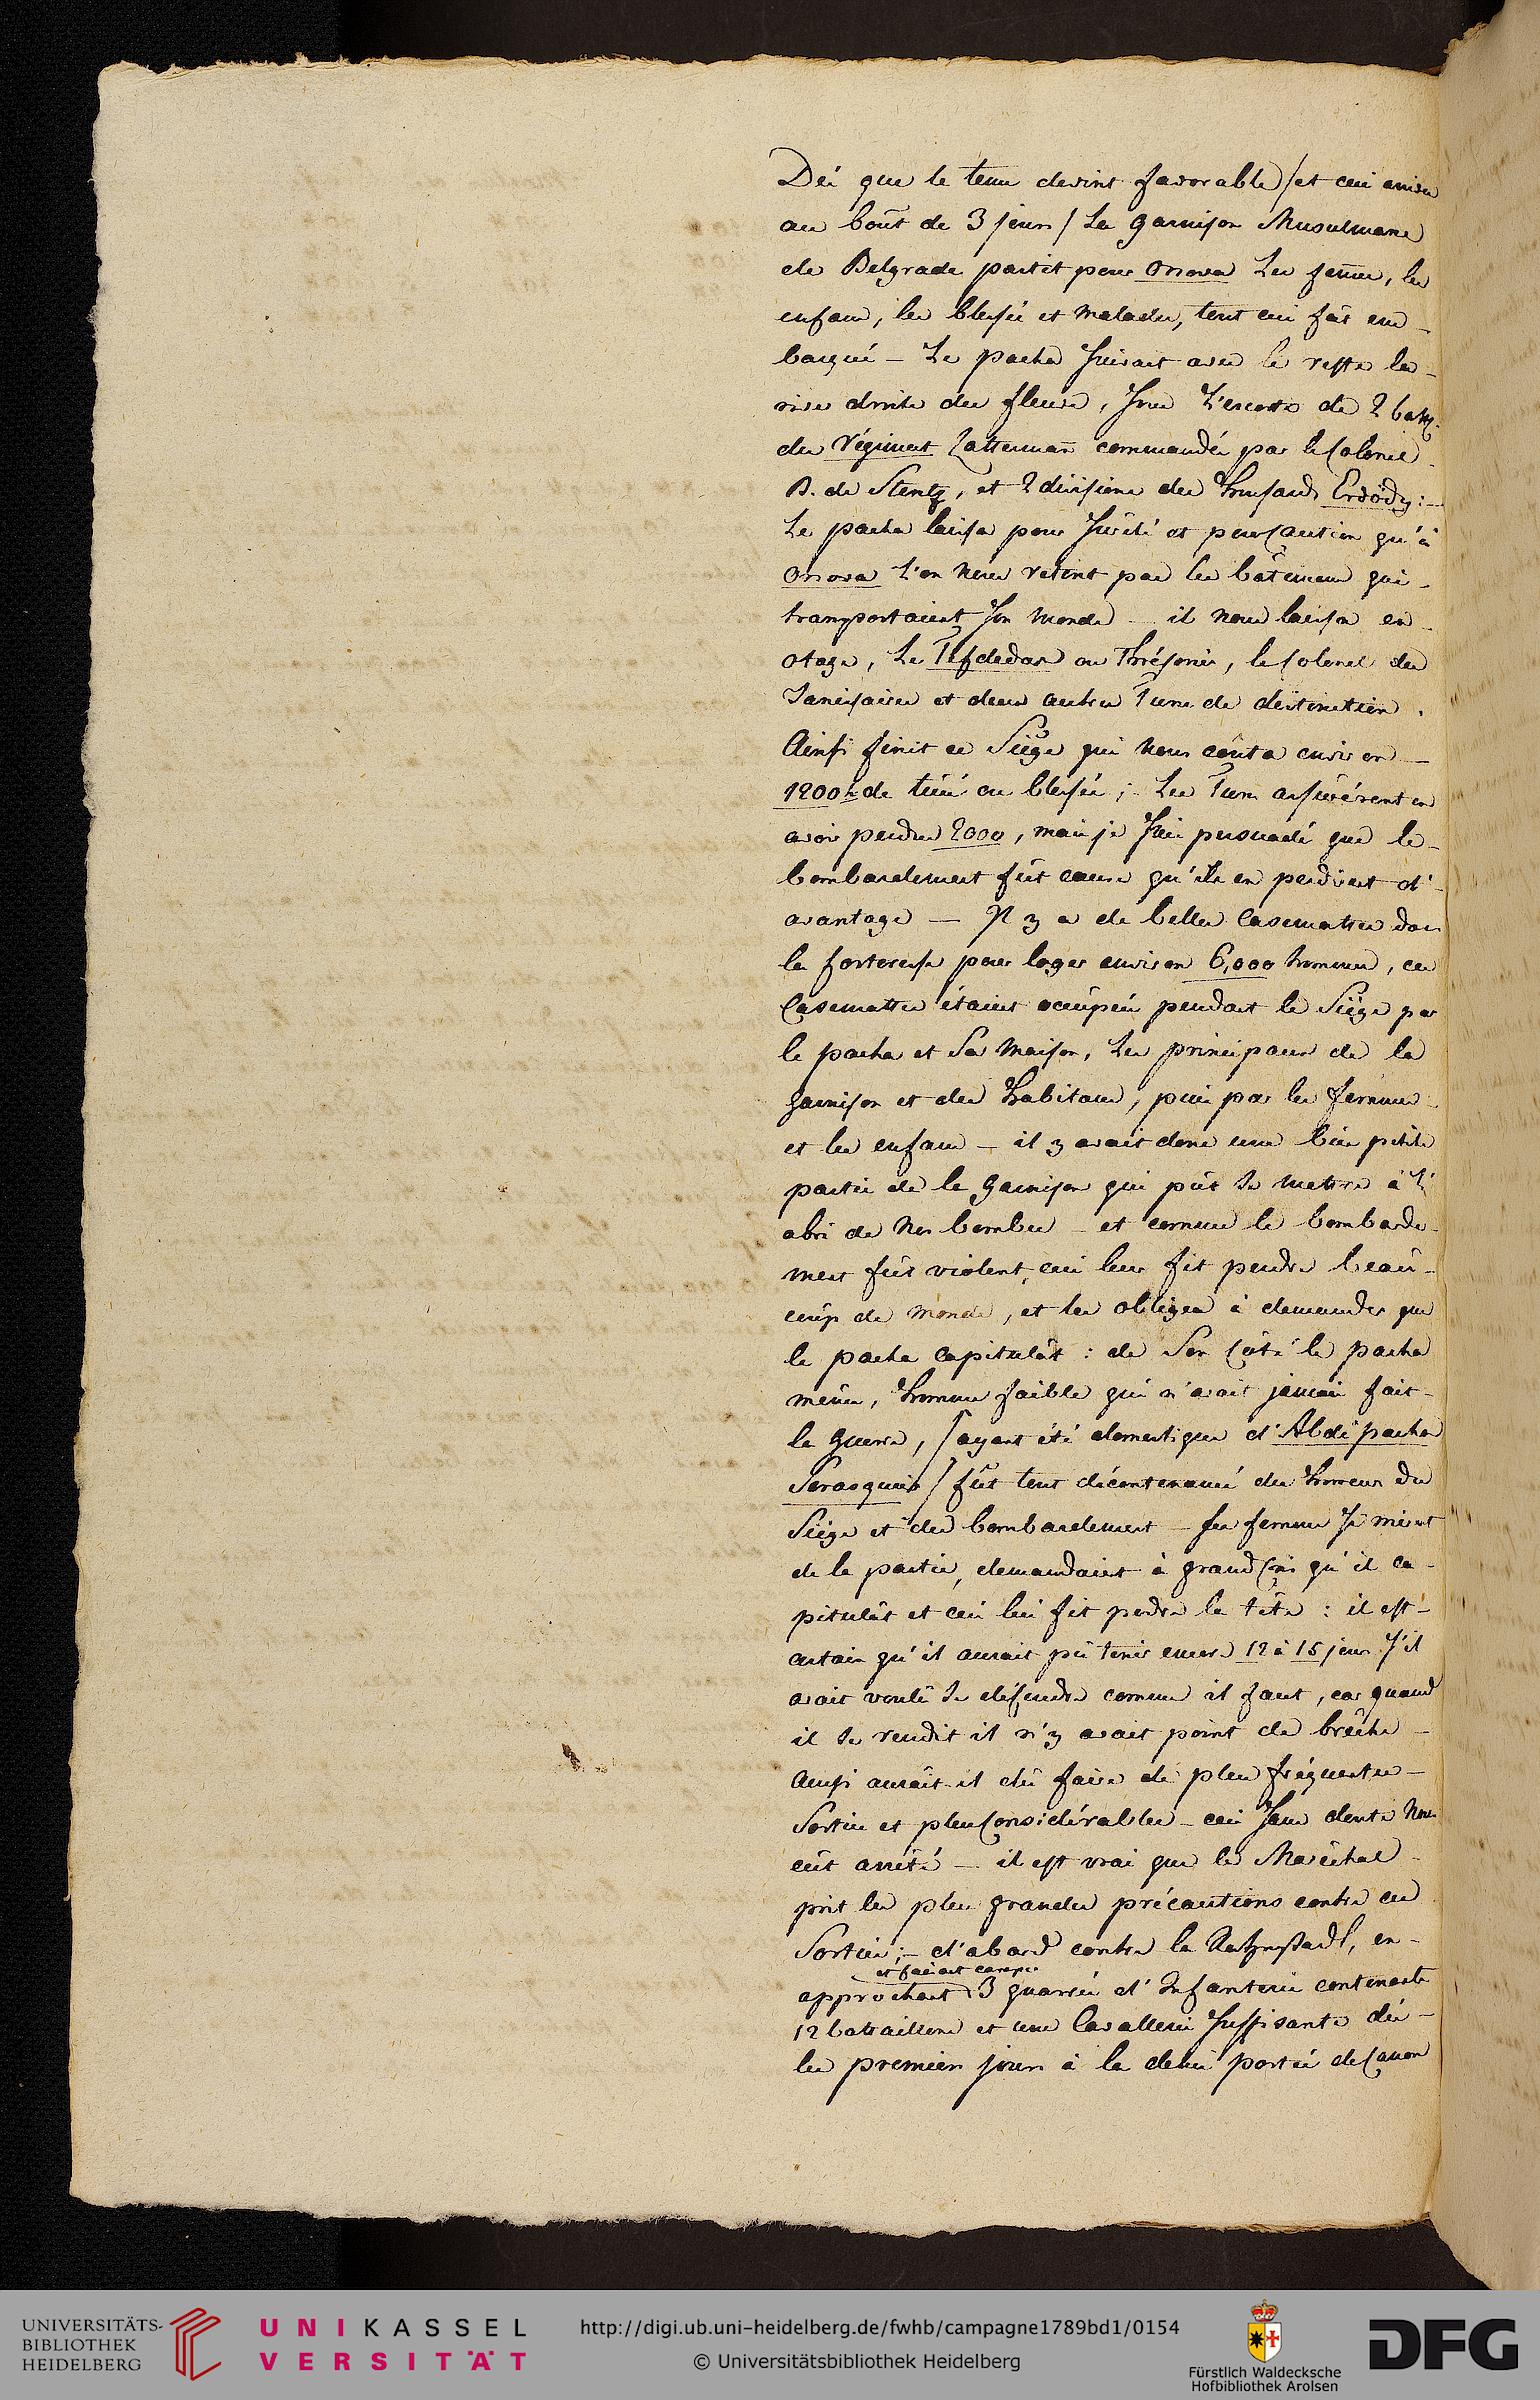 Dès que le tems devint favorable /et ceci arriva
au boût de 3 jours/ La garnison Musulmane
de Belgrade partit pour Orsova Les femes, les
enfans, les blessés et malades, tout ceci fût em-
barqué – Le pacha suivait avec le reste la
rive droite du fleuve, sous L'escorte de 2 batt:
du Régiment Latterman commandés par le Colonel
B. de Stentz, et 2 divisions des houssards Erdödy:–
Le pacha laissa pour sûreté et pour caution qu'à
Orsova L'on nous retint pas les bâtimens qui
transportaient son monde – il nous laissa en
otage, Le Tefdedar ou Thrésorier, le Colonel des
Janissaires et deux autres Turcs de distinction.
Ainsi finit ce Siège qui nous coûta environ –
1200 h de tués ou blessés; Les Turcs assurérent en
avoir perdus 2000, mais je suis persuadé que le
bombardement fût cause qu'ils en perdirent d'
avantage – Il y a de belles Casemattes dans
la forteresse pour loger environ 6,000 hommes, ces
Casemattes étaient occupées pendant le Siège par
le pacha et Sa Maison, Les principaux de la
garnison et des habitans, puis par les femmes
et les enfans – il y avait donc une bien petite
partie de la garnison qui pût se mettre à l'
abri de nos bombes – et comme le bombarde-
ment fût violent, ceci leur fit perdre beau-
coup de monde, et les obligea à demander que
le pacha capitulât: de Son côté le pacha
même, homme faible qui n'avait jamais fait
la Guerre, /ayant été domestique d'Abdi pacha
Serasquier/ fût tout décontenancé des horreurs du
Siège et du bombardement – ses femmes se mirent
de la partie, demandaient à grands cris qu'il ca-
pitulât et ceci lui fit perdre la tête: il est
certain qu'il aurait pû tenir encore 12 à 15 jours s'il
avait voulû se défendre comme il faut, car quand
il se rendit il n'y avait point de brêche –
Aussi aurait-il dû faire de plus fréquentes
Sorties et plus Considérables – ceci sans doute nous
eût arrêté – il est vrai que le Maréchal
prit les plus grandes précautions contre ces
Sorties;– d'abord contre la Ratzenstadt, en-
et faisant camper
approchant 3 quarrés d'Infanterie contenants
12 bataillons et une Cavallerie suffisante dès
les premiers jours à la demi portée de Canon
UNIVERSITÄTS-
BIBLIOTHEK
HEIDELBERG
UNIKASSEL
VERSITÄT
http://digi.ub.uni-heidelberg.de/fwhb/campagne1789bd1/0154
© Universitätsbibliothek Heidelberg
Fürstlich Waldecksche
Hofbibliothek Arolsen
DFG